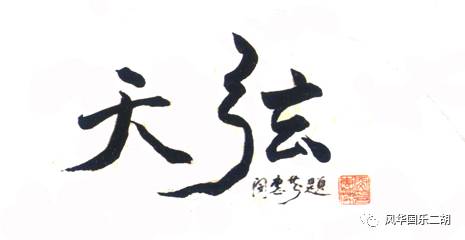 天弦
闵惠芬题
风华国乐二胡